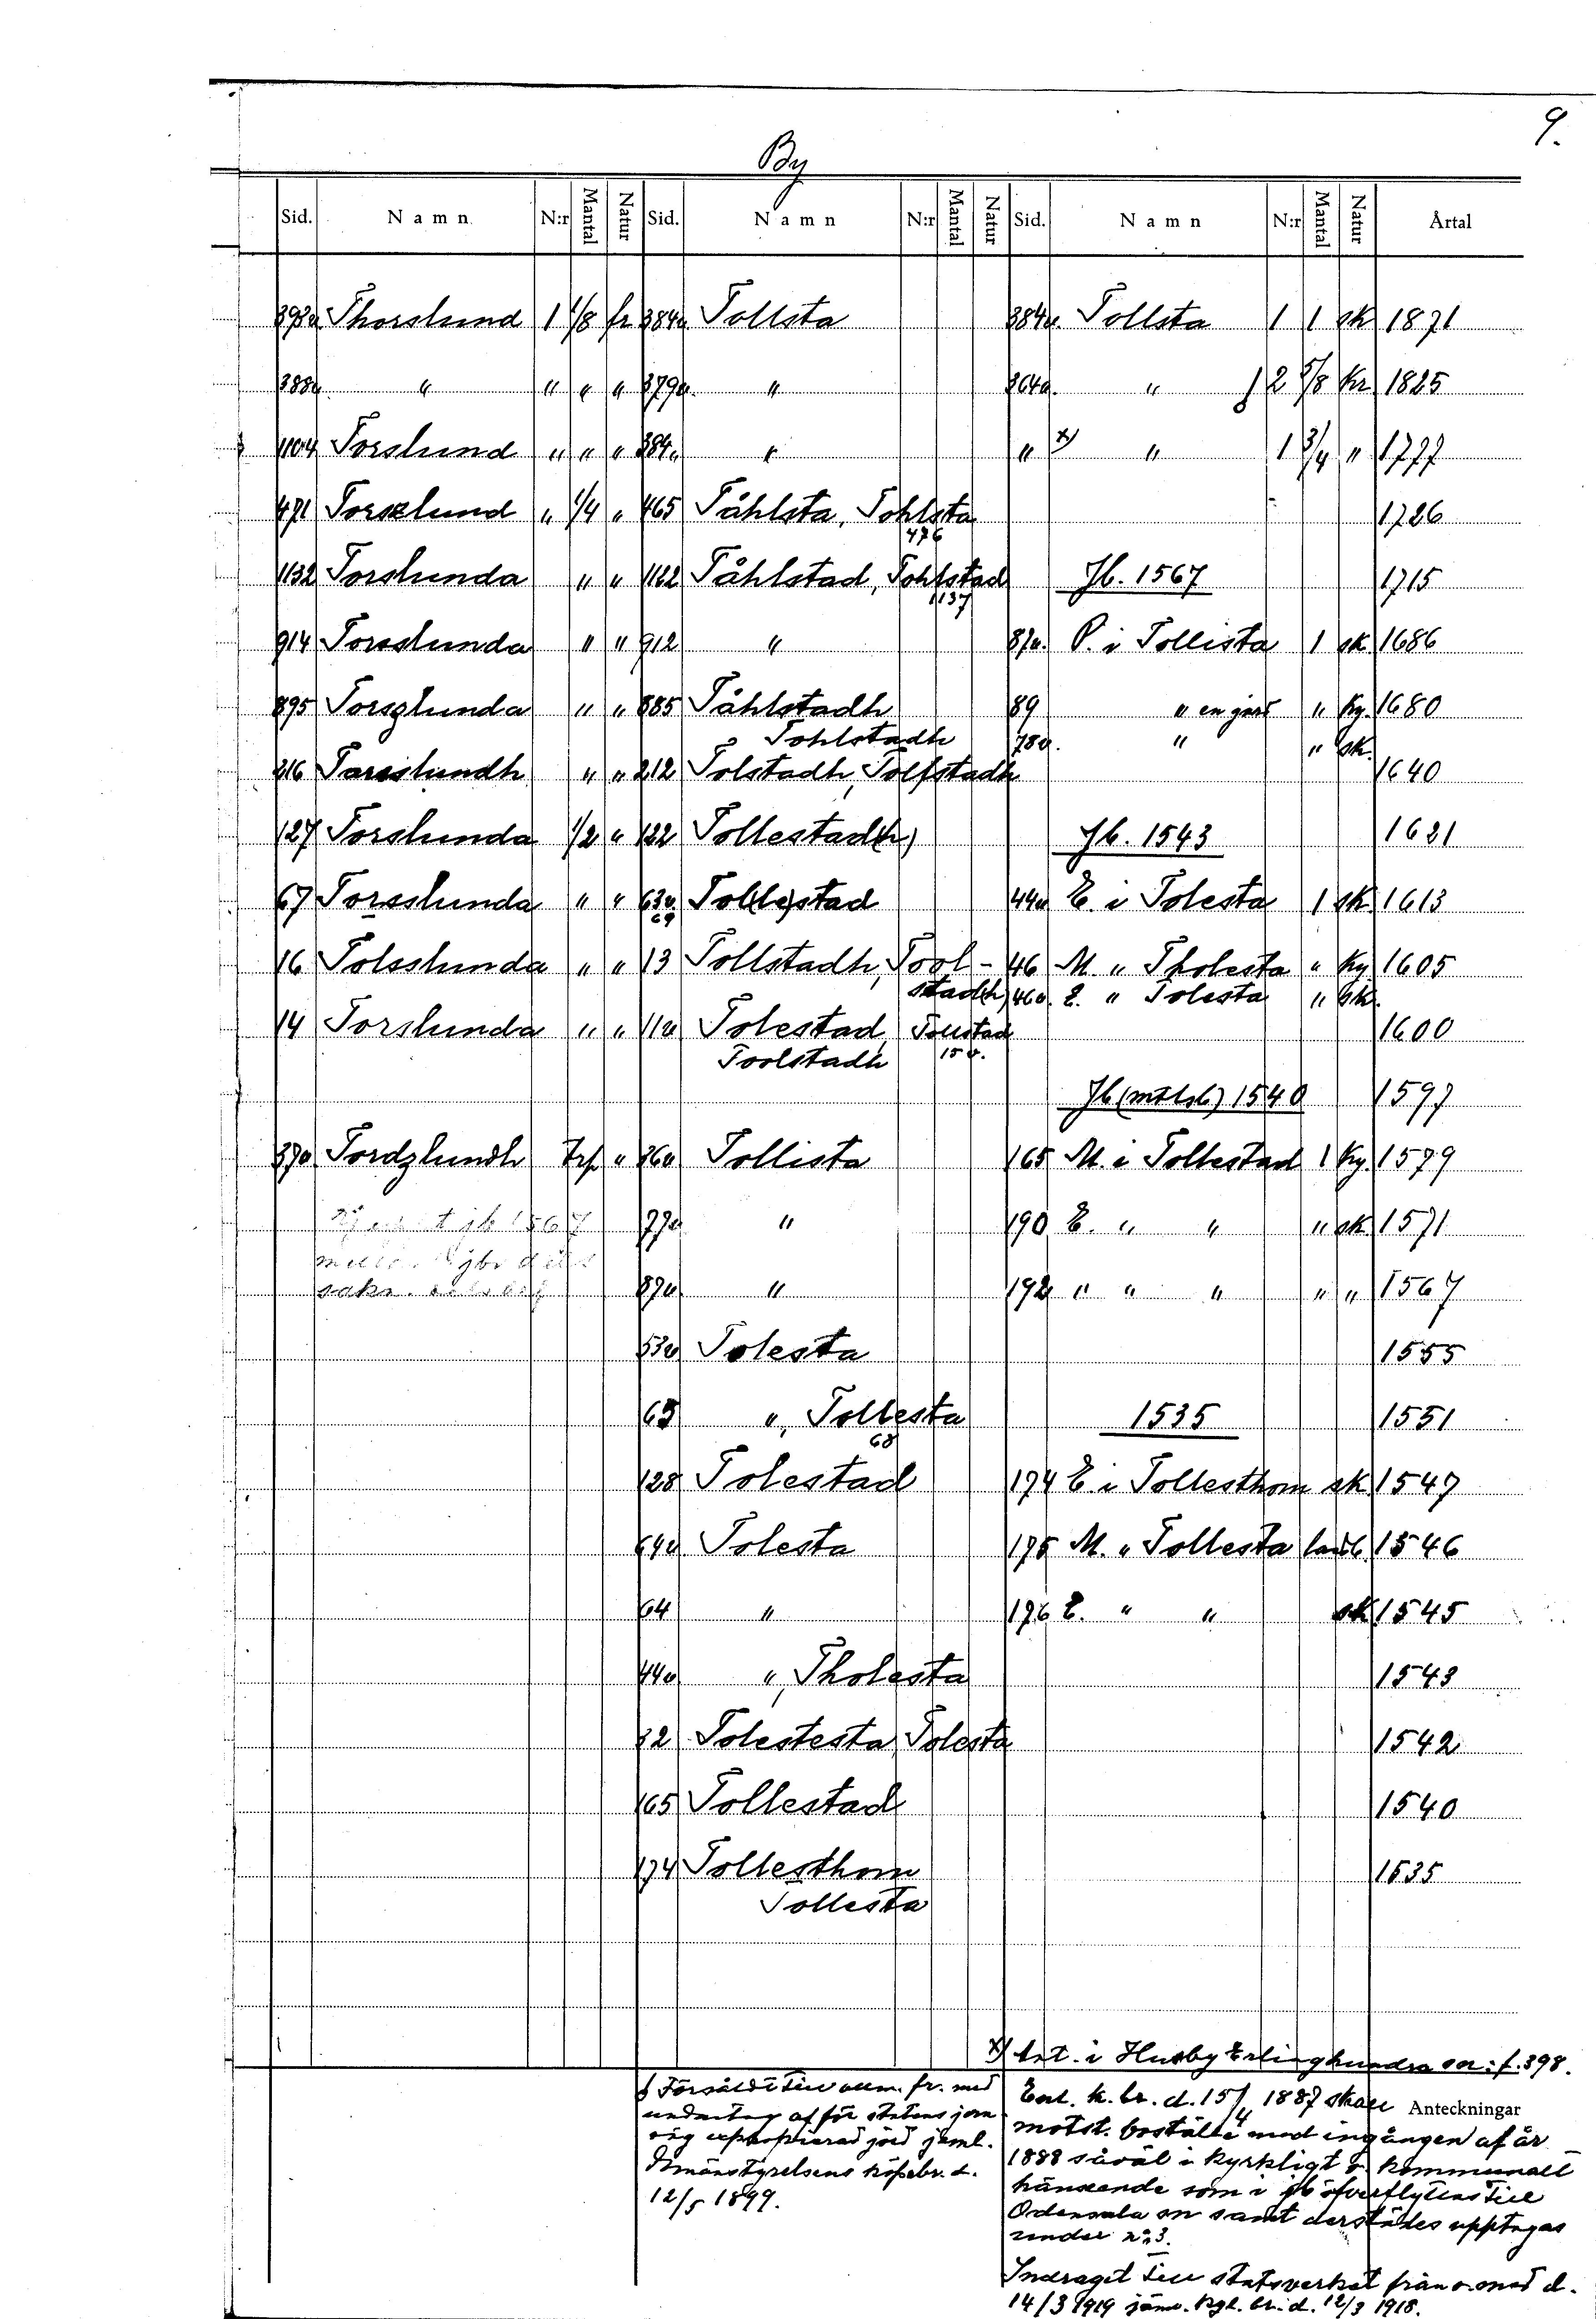 9.
By
Sid. Namn N:r Mantal Natur Sid. Namn N:r Mantal Natur Sid. Namn N:r Mantal Natur Årtal
393a Thorslund 1 1/8 fr 384a Tollsta 384a. Tollsta 1 1 sk 1871
388a " " " " 379a. " 364a. " f 2 5/8 Kr 1825
1104 Torslund " " " 384a " " x) " 1 3/4 " 1777
471 Torszlund " 1/4 " 465 Tåhlsta, Tohlsta 1726
476
1132 Torslunda " " 1162 Tåhlstad, Tohlstad Jb. 1567 1715
1137
914 Torsslunda " " 912 " 87a. P. i Tollista 1 sk. 1686
895 Torszlunda " " 885 Tåhlstadh 89 " en gård " Ky. 1680
Tohlstadh 78a. " " sk.
216 Tarsslundh " " 212 Tolstadh, Tolfstadh 1640
127 Torslunda 1/2 " 122 Tollestad(h) Jb. 1543 1621
67 Torsslunda " " 63a Tol(le)stad 44a E. i Tolesta 1 sk 1613
69
16 Tolsslunda " " 13 Tollstadh, Tool- 46 M. " Tholesta " Ky 1605
stad(h) 46a. E. " Tolesta " sk.
14 Torslunda " " 11a Tolestad, Tollstad 1600
Toolstadh 15a.
Jb (mtlsb) 1540 1597
370 Tordzlundh trp " 36a Tollista 165 M. i Tollestad 1 Ky. 1579
77a " 190 E. " " " sk 1571
87a " 192 " " " " " 1567
53a Tolesta 1555
63 ", Tollesta 1535 1551
68
128 Tolestad 174 E i Tollesthom sk 1547
64a Tolesta 175 M. " Tollesta landb 1546
64 " 176 E. " " sk 1545
44a ", Tholesta 1543
32 Tolestesta, Tolesta 1542
165 Tollestad 1540
174 Tollesthom 1535
Tollesta
x) Ant. i Husby Erlinghundra sn: f. 398.
f Försåldt till allm. fr. med
undantag af för statens jern
väg expropierad jord jäml.
Domänstyrelsens köpebr. d.
12/5 1899.
Enl. k. br. d. 15/4 1887 skall Anteckningar
motst. boställe med ingången af år
1888 såväl i kyrkligt o. kommunalt
hänseende som i jb öfverflyttas till
Odensala sn samt derstädes upptagas
under n:o 3.
Indraget till statsverket från o. med d.
14/3 1919 jäml. Kgl. br. d. 12/3 1918.